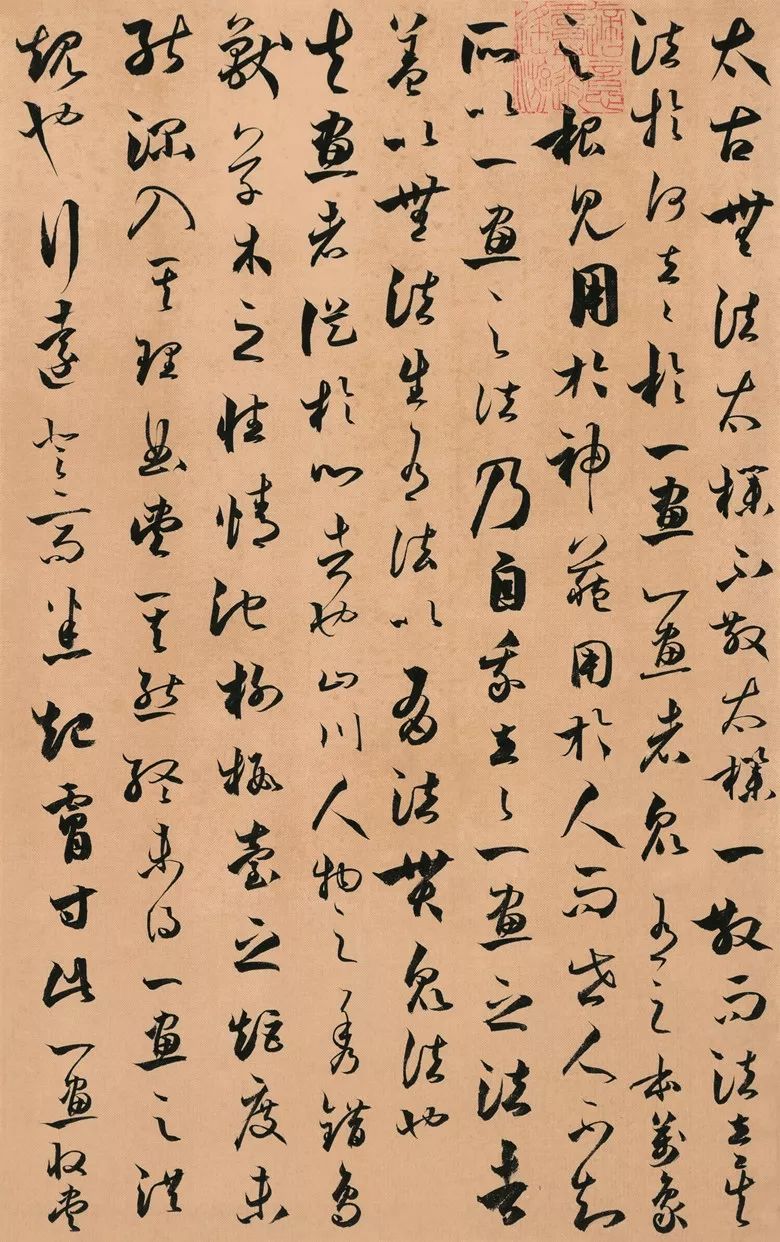 太古無法太樸不散太樸一散而法立矣
法於何立〻於一畫一畫者眾有之本萬象
之根見用於神藏用於人而世人不知
所以一畫之法乃自我立〻一畫之法者
蓋以無法生有法以有法貫眾法也
夫畫者從於心者也山川人物之秀錯鳥
獸草木之性情池榭樓臺之矩度未
能深入其理曲盡其態終未得一畫之洪
規也行遠登高悉起膚寸此一畫收盡